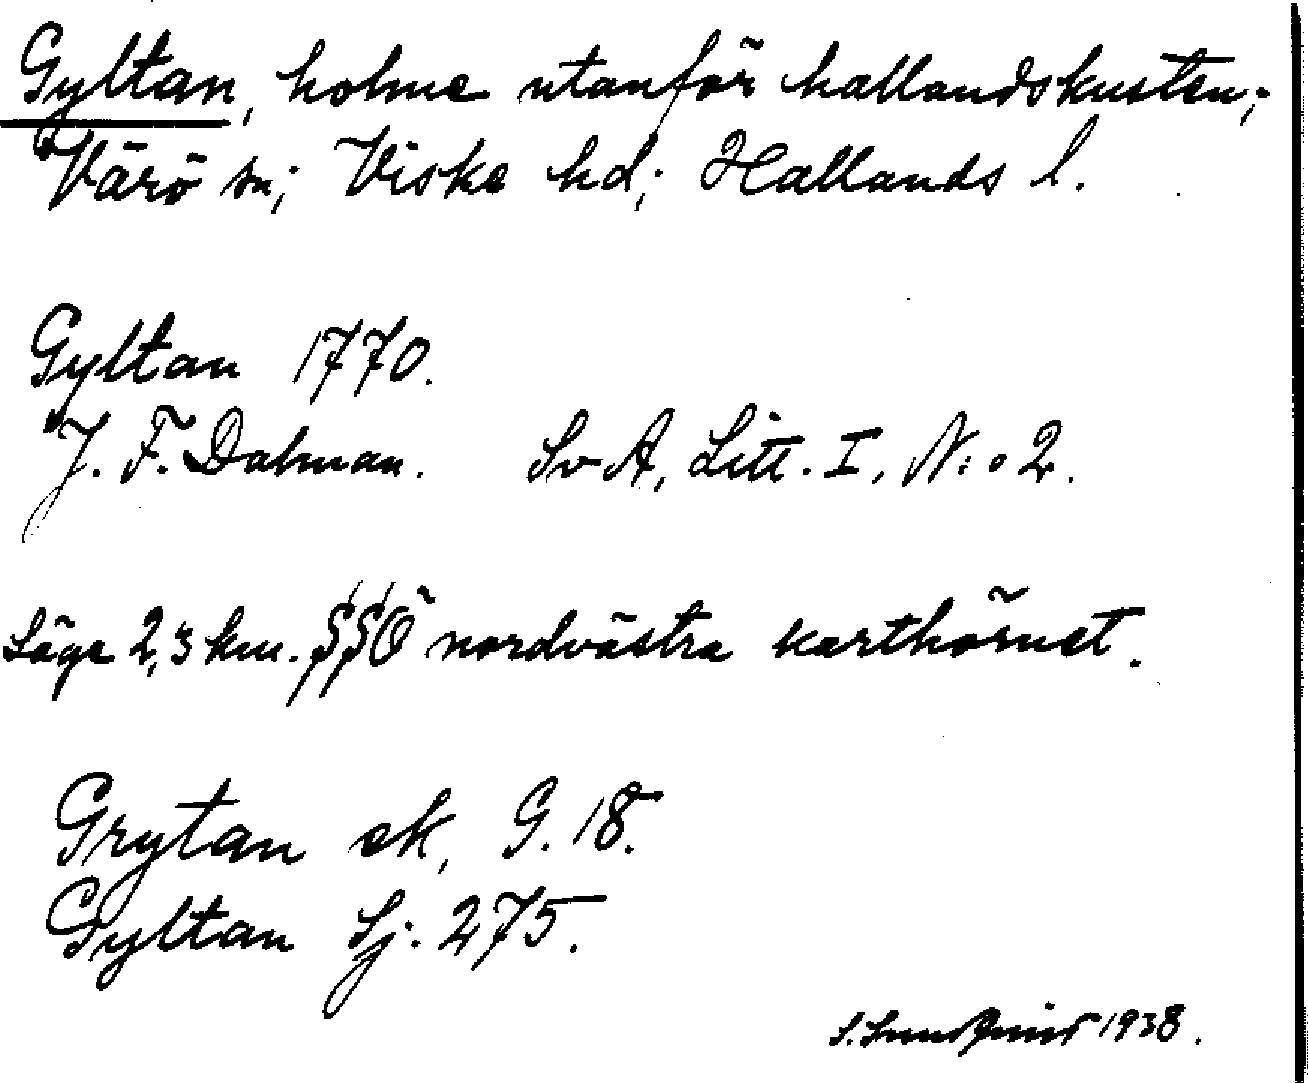 Gyltan, holme utanför hallandskusten;
Värö sn; Viske hd; Hallands l.
Gyltan 1770.
J. F. Dalman. SvA, Litt. I, N:o 2.
Läge 2,3 km. SSÖ nordvästra karthörnet.
Grytan ek, G. 18.
Gyltan Sj. 275.
S. Sundqvist 1938.